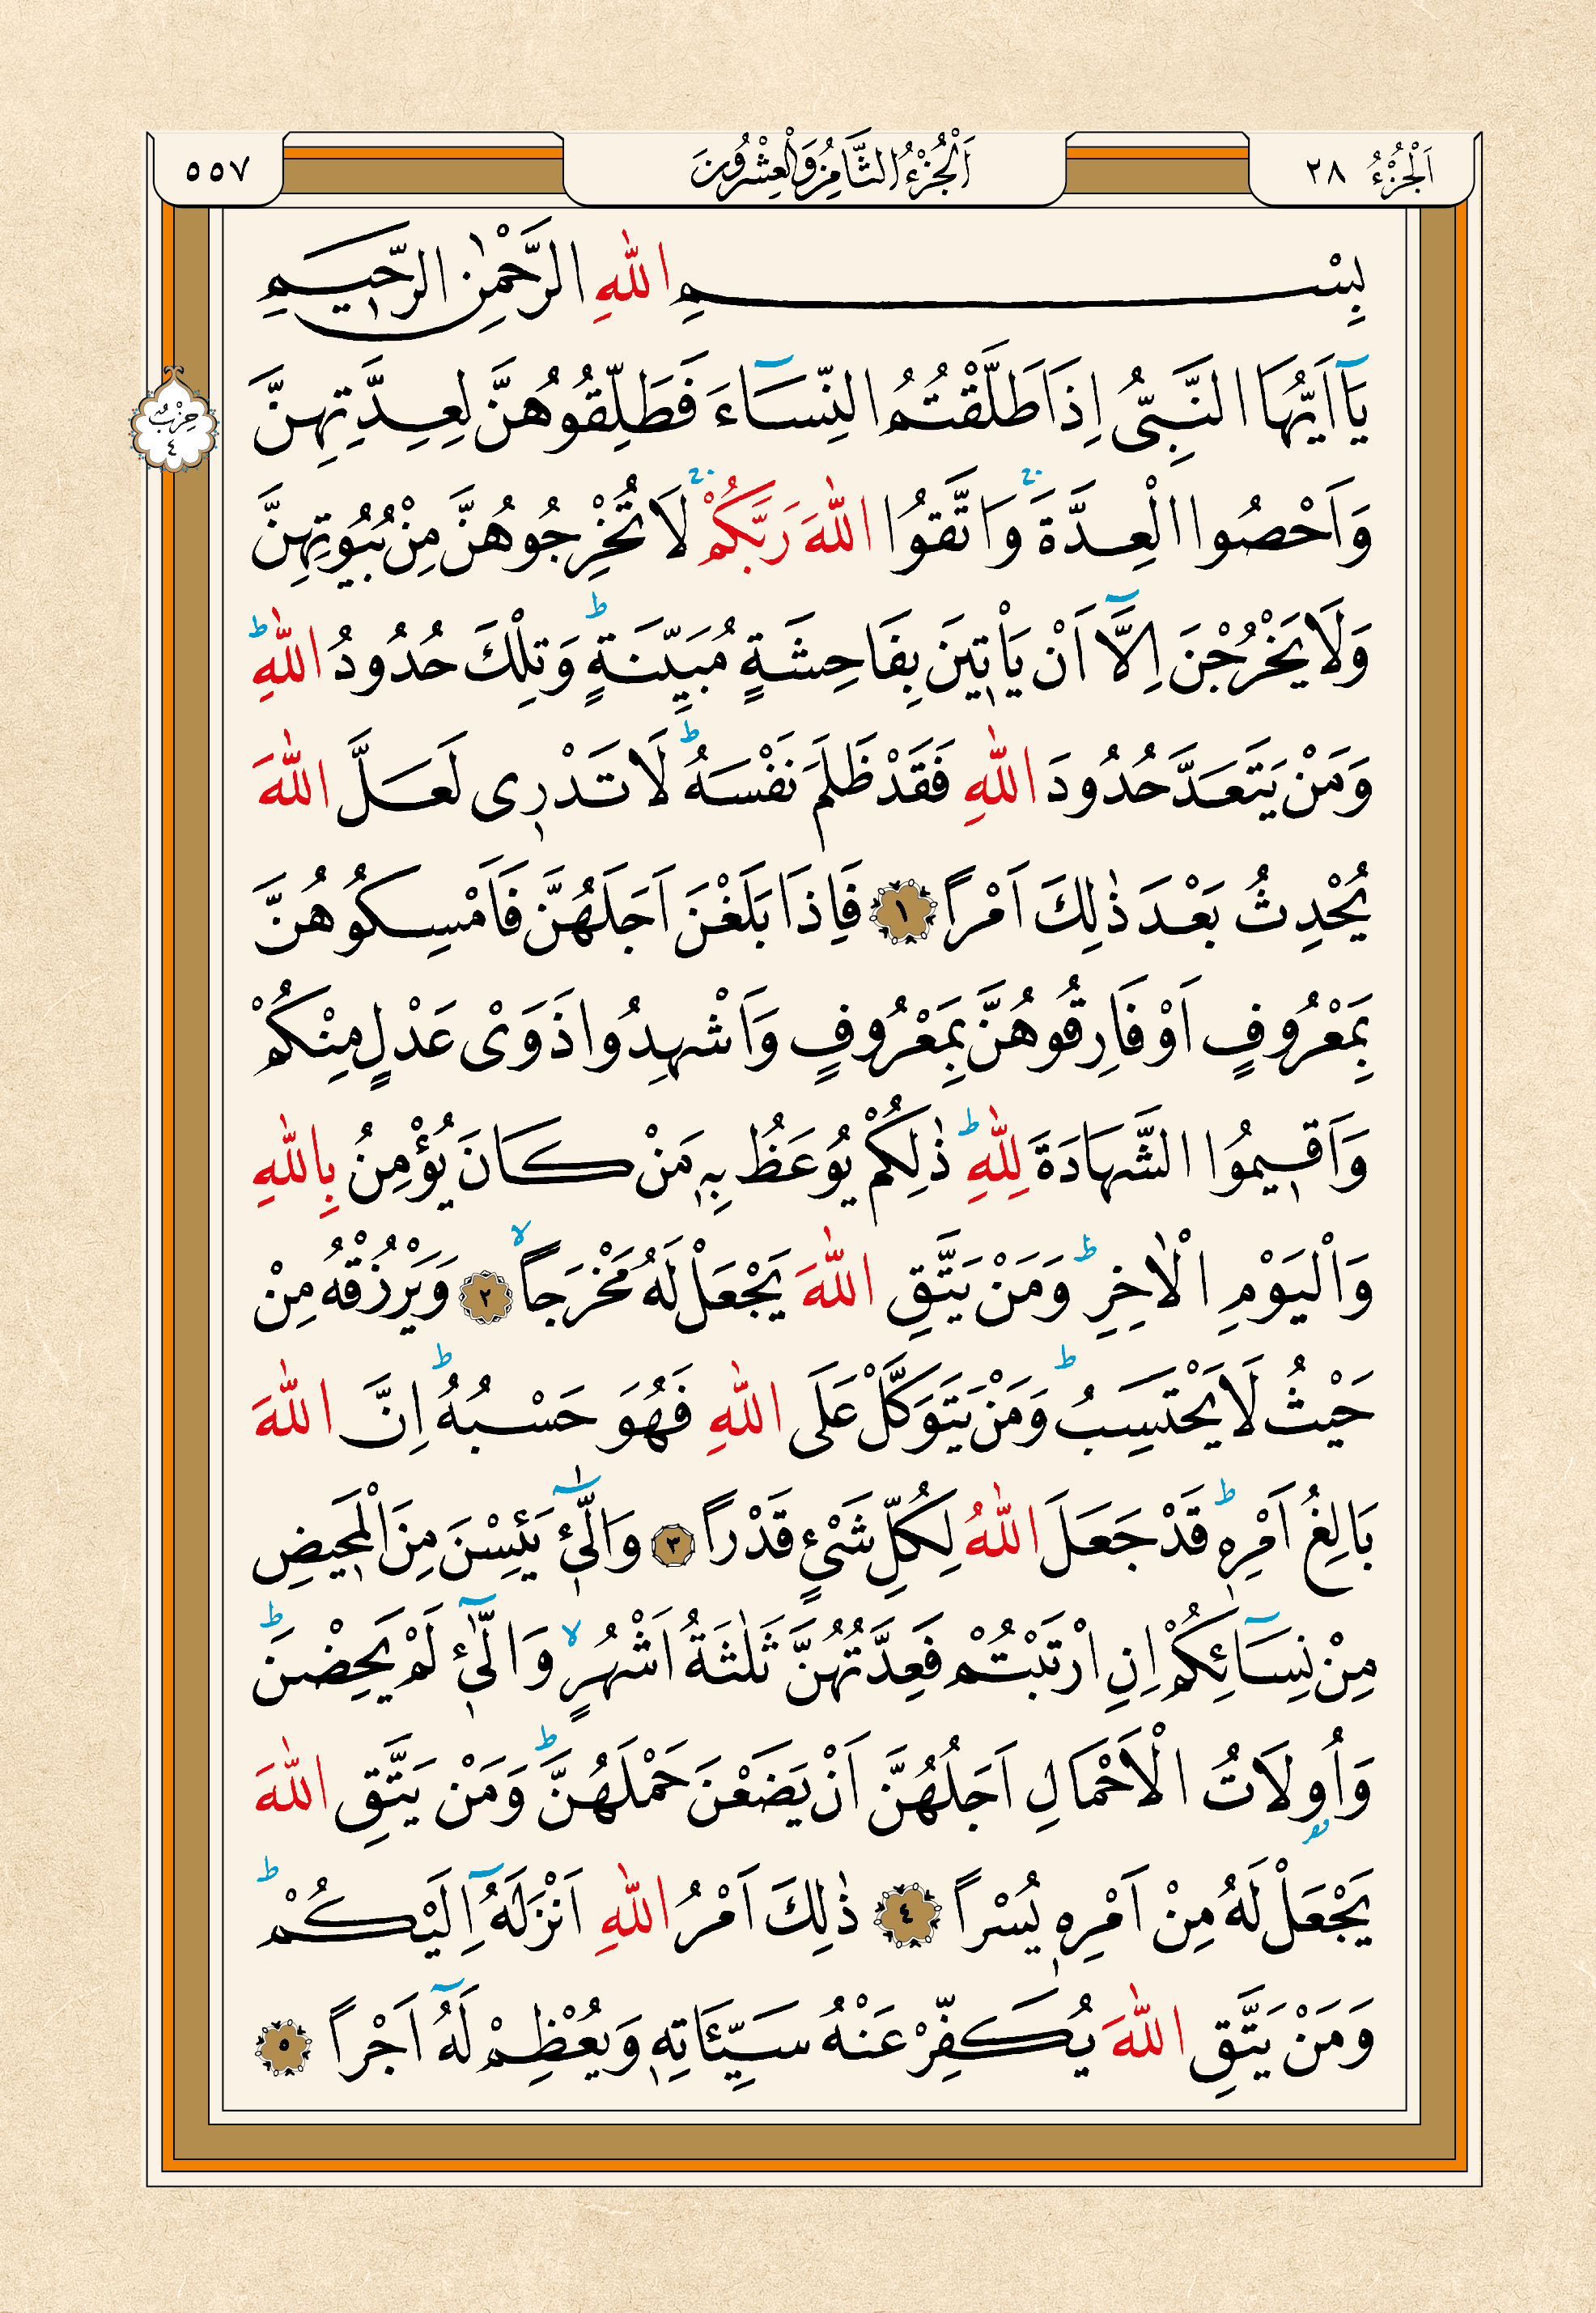 اَلْجُزْءُ ٢٨
اَلْجُزْءُ الثَّامِنُ وَالْعِشْرُونَ
٥٥٧
بِسْمِ اللّٰهِ الرَّحْمٰنِ الرَّحِيمِ
يَٓا اَيُّهَا النَّبِىُّ اِذَا طَلَّقْتُمُ النِّسَٓاءَ فَطَلِّقُوهُنَّ لِعِدَّتِهِنَّ
حِزْبٌ
٤
وَاَحْصُوا الْعِدَّةَۚ وَاتَّقُوا اللّٰهَ رَبَّكُمْۚ لَا تُخْرِجُوهُنَّ مِنْ بُيُوتِهِنَّ
وَلَا يَخْرُجْنَ اِلَّٓا اَنْ يَأْت۪ينَ بِفَاحِشَةٍ مُبَيِّنَةٍۜ وَتِلْكَ حُدُودُ اللّٰهِۜ
وَمَنْ يَتَعَدَّ حُدُودَ اللّٰهِ فَقَدْ ظَلَمَ نَفْسَهُۜ لَا تَدْر۪ى لَعَلَّ اللّٰهَ
يُحْدِثُ بَعْدَ ذٰلِكَ اَمْرًا ١ فَاِذَا بَلَغْنَ اَجَلَهُنَّ فَاَمْسِكُوهُنَّ
بِمَعْرُوفٍ اَوْ فَارِقُوهُنَّ بِمَعْرُوفٍ وَاَشْهِدُوا ذَوَىْ عَدْلٍ مِنْكُمْ
وَاَق۪يمُوا الشَّهَادَةَ لِلّٰهِۜ ذٰلِكُمْ يُوعَظُ بِه۪ مَنْ كَانَ يُؤْمِنُ بِاللّٰهِ
وَالْيَوْمِ الْاٰخِرِۜ وَمَنْ يَتَّقِ اللّٰهَ يَجْعَلْ لَهُ مَخْرَجًاۙ ٢ وَيَرْزُقْهُ مِنْ
حَيْثُ لَا يَحْتَسِبُۜ وَمَنْ يَتَوَكَّلْ عَلَى اللّٰهِ فَهُوَ حَسْبُهُۜ اِنَّ اللّٰهَ
بَالِغُ اَمْرِه۪ۜ قَدْ جَعَلَ اللّٰهُ لِكُلِّ شَىْءٍ قَدْرًا ٣ وَالّٰٓـ۪ٔى يَئِسْنَ مِنَ الْمَح۪يضِ
مِنْ نِسَٓائِكُمْ اِنِ ارْتَبْتُمْ فَعِدَّتُهُنَّ ثَلٰثَةُ اَشْهُرٍۙ وَالّٰٓـ۪ٔى لَمْ يَحِضْنَۜ
وَاُولَاتُ الْاَحْمَالِ اَجَلُهُنَّ اَنْ يَضَعْنَ حَمْلَهُنَّۜ وَمَنْ يَتَّقِ اللّٰهَ
يَجْعَلْ لَهُ مِنْ اَمْرِه۪ يُسْرًا ٤ ذٰلِكَ اَمْرُ اللّٰهِ اَنْزَلَهُٓ اِلَيْكُمْۜ
وَمَنْ يَتَّقِ اللّٰهَ يُكَفِّرْ عَنْهُ سَيِّئَاتِه۪ وَيُعْظِمْ لَهُٓ اَجْرًا ٥